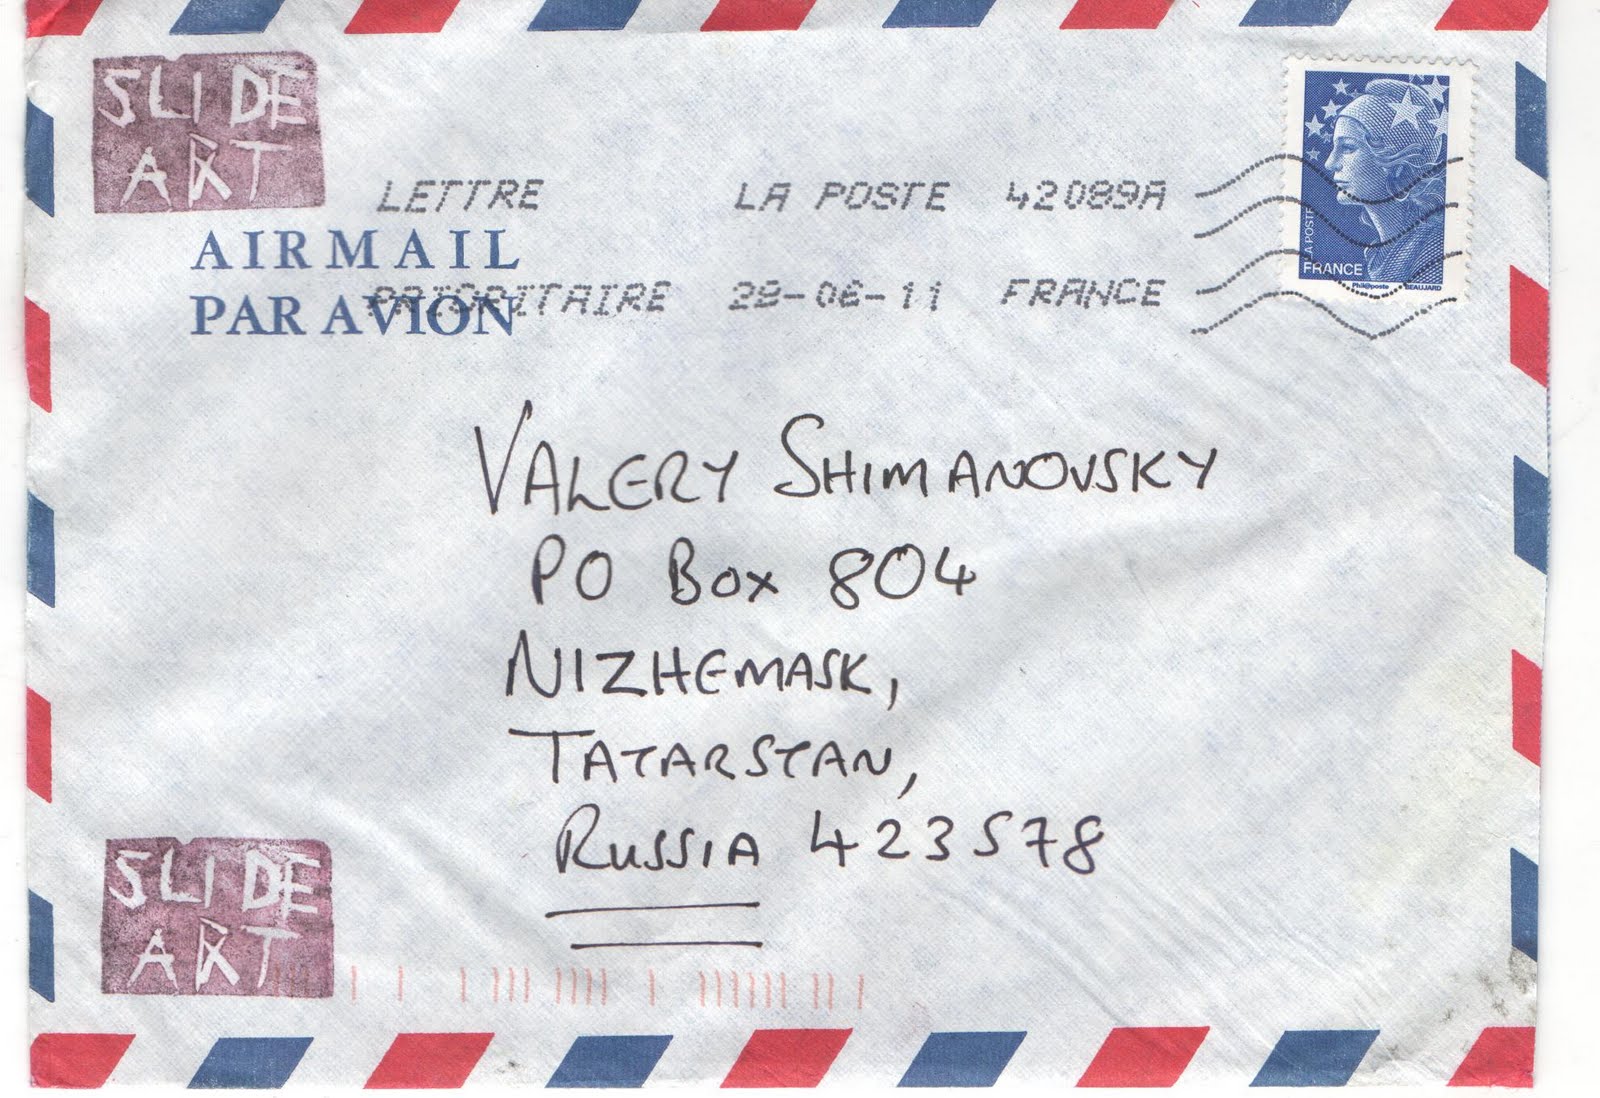 SLIDE
ART
LETTRE LA POSTE 42089A
AIRMAIL
PRIORITAIRE 28-06-11 FRANCE
PAR AVION
LA POSTE
FRANCE
Phil@poste BEAUJARD
VALERY SHIMANOVSKY
PO BOX 804
NIZHEMASK,
TATARSTAN,
RUSSIA 423578
SLIDE
ART